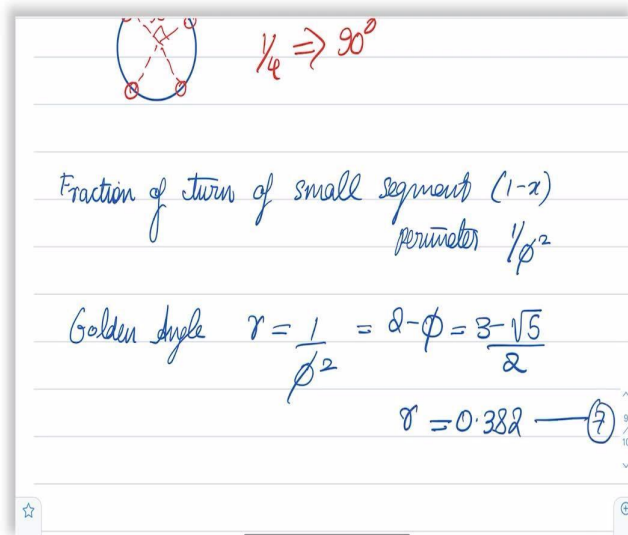 1/4 ⇒ 90°
Fraction of turn of small segment (1-x)
perimeter 1/φ²
Golden Angle γ = 1/φ² = 2-φ = 3-√5/2
γ = 0.382 — 7